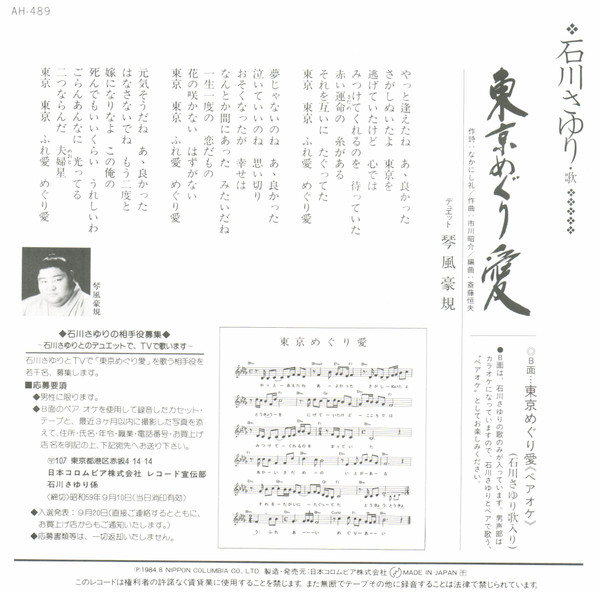 AH-489
❖石川さゆり・歌❖❖❖❖❖
東京めぐり愛
作詩：なかにし礼／作曲：市川昭介／編曲：斎藤恒夫
デュエット 琴風豪規
やっと逢えたね あゝ良かった
さがしぬいたよ 東京を
逃げていたけど 心では
みつけてくれるのを 待っていた
赤い運命の 糸がある
それを互いに たぐってた
東京 東京 ふれ愛 めぐり愛
夢じゃないのね あゝ良かった
泣いていいのね 思い切り
おそくなったが 幸せは
なんとか間にあった みたいだね
一生一度の 恋だもの
花の咲かない はずがない
東京 東京 ふれ愛 めぐり愛
元気そうだね あゝ良かった
はなさないでね もう二度と
嫁になりなよ この俺の
死んでもいいくらい うれしいわ
ごらんあんなに 光ってる
二つならんだ 夫婦星
東京 東京 ふれ愛 めぐり愛
琴風豪規
◎B面…東京めぐり愛《ペアオケ》
(石川さゆり歌入り)
●B面は、石川さゆりの歌のみが入っています。男声部は
カラオケになっていますので、石川さゆりとペアで歌う、
“ペアオケ”としてお楽しみください。
◆石川さゆりの相手役募集◆
―石川さゆりとのデュエットで、TVで歌います―
石川さゆりとTVで「東京めぐり愛」を歌う相手役を
若千名、募集します。
■応募要項
●男性に限ります。
●B面のペアオケを使用して録音したカセット・
テープと、最近3ヶ月以内に撮影した写真を添
えて、住所・氏名・年令・職業・電話番号・お買上げ
店名を明記の上、下記宛先へお送り下さい。
〒107 東京都港区赤坂4-14-14
日本コロムビア株式会社 レコード宣伝部
石川さゆり係
(締切)昭和59年9月10日(当日消印有効)
◆入選発表：9月20日(直接ご連絡するとともに、
お買上げ店からもご通知いたします。)
●応募書類等は、一切返却いたしません。
東京めぐり愛
Ⓟ1984.8 NIPPON COLUMBIA CO., LTD. 製造・発売元：日本コロムビア株式会社 MADE IN JAPAN
このレコードは権利者の許諾なく賃貸業に使用することを禁じます。また無断でテープその他に録音することは法律で禁じられています。